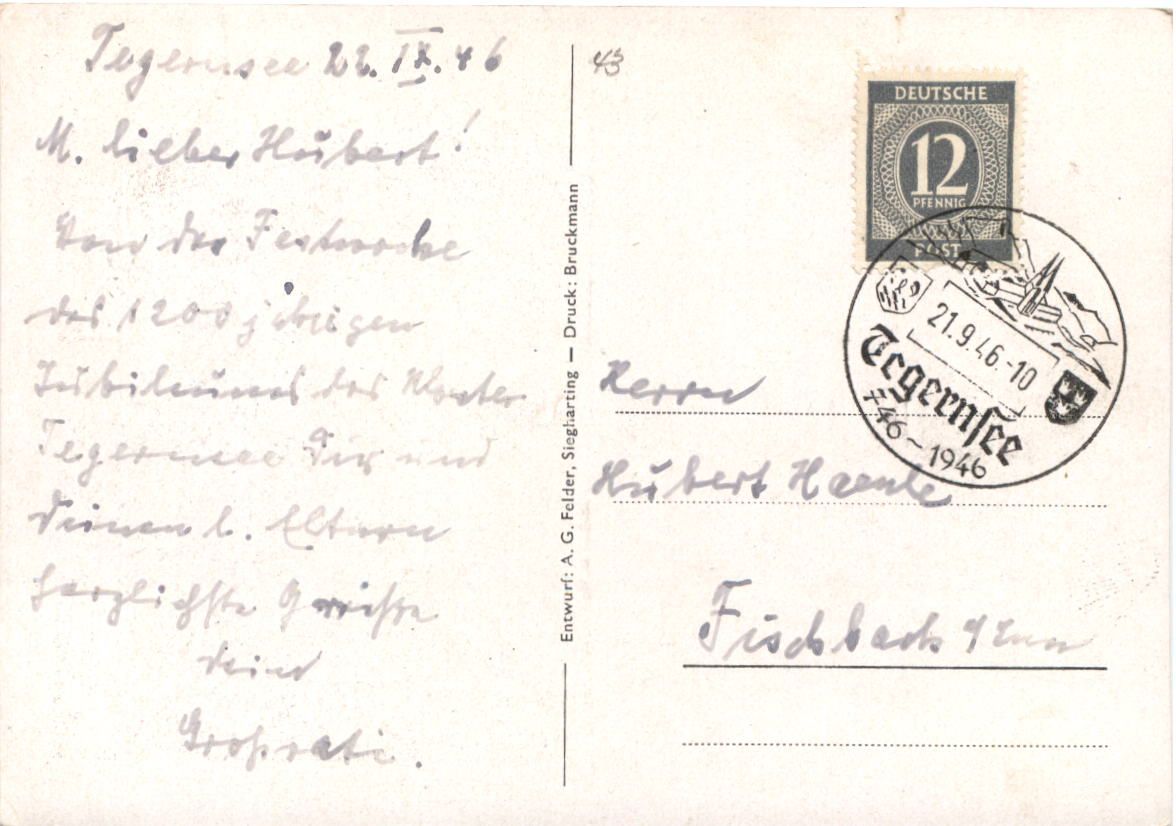 Tegernsee 22. IX. 46
M. lieber Hubert!
Von der Festwoche
des 1200 jährigen
Jubiläums des Kloster
Tegernsee Dir und
Deinen l. Eltern
herzlichste Grüße
Dein
Großvati.
Entwurf: A. G. Felder, Siegharting — Druck: Bruckmann
43
DEUTSCHE
12
PFENNIG
POST
21.9.46-10
Tegernsee
746-1946
Herrn
Hubert Haenle
Fischbach a/Inn